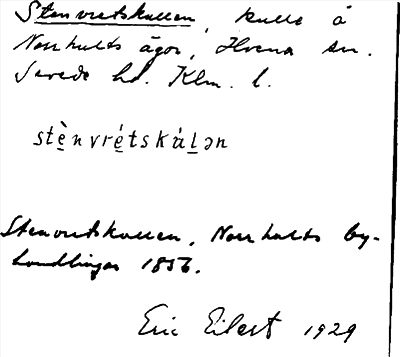 Stenvretskullen, kulle å
Norrhults ägor, Hvena sn.
Sevede hd. Klm. l.
stè̱nvré̱tskáḻən
Stenvretskullen, Norrhults by-
handlingar 1856.
Eric Eilert 1929